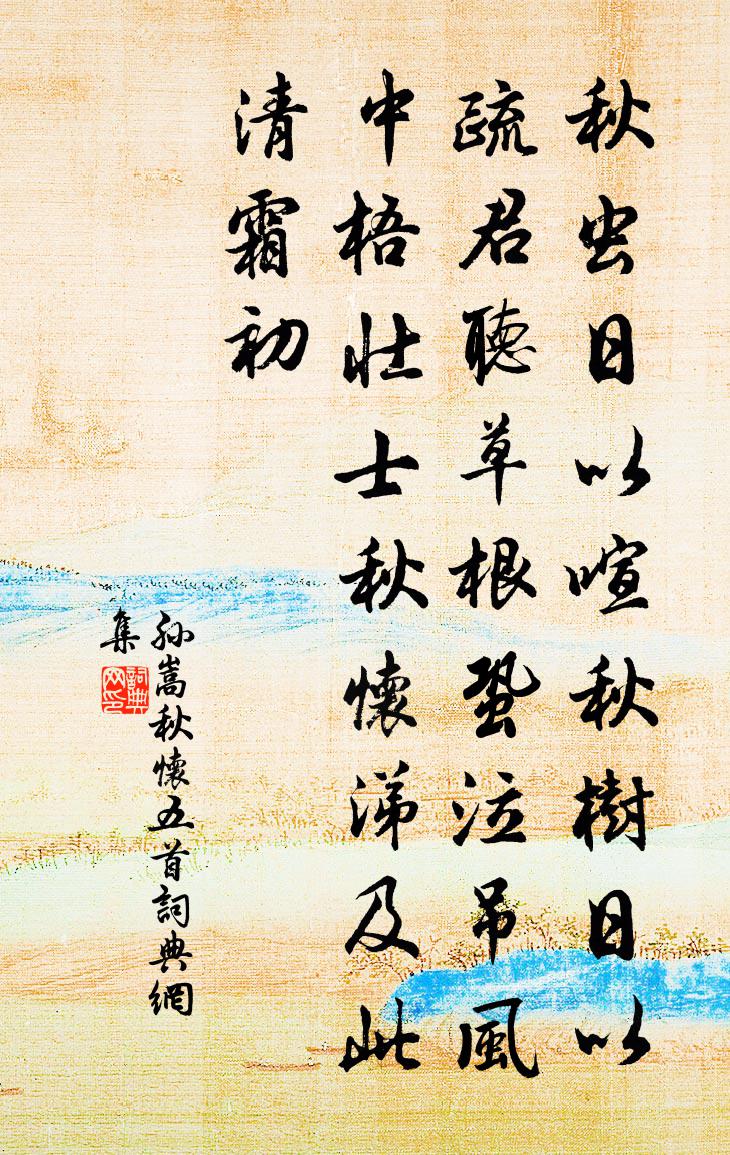 秋虫日以喧秋樹日以
疏君聽草根蛩泣吊風
中梧壯士秋懷涕及此
清霜初
孫嵩秋懷五首詞典網
集
詞典
网印